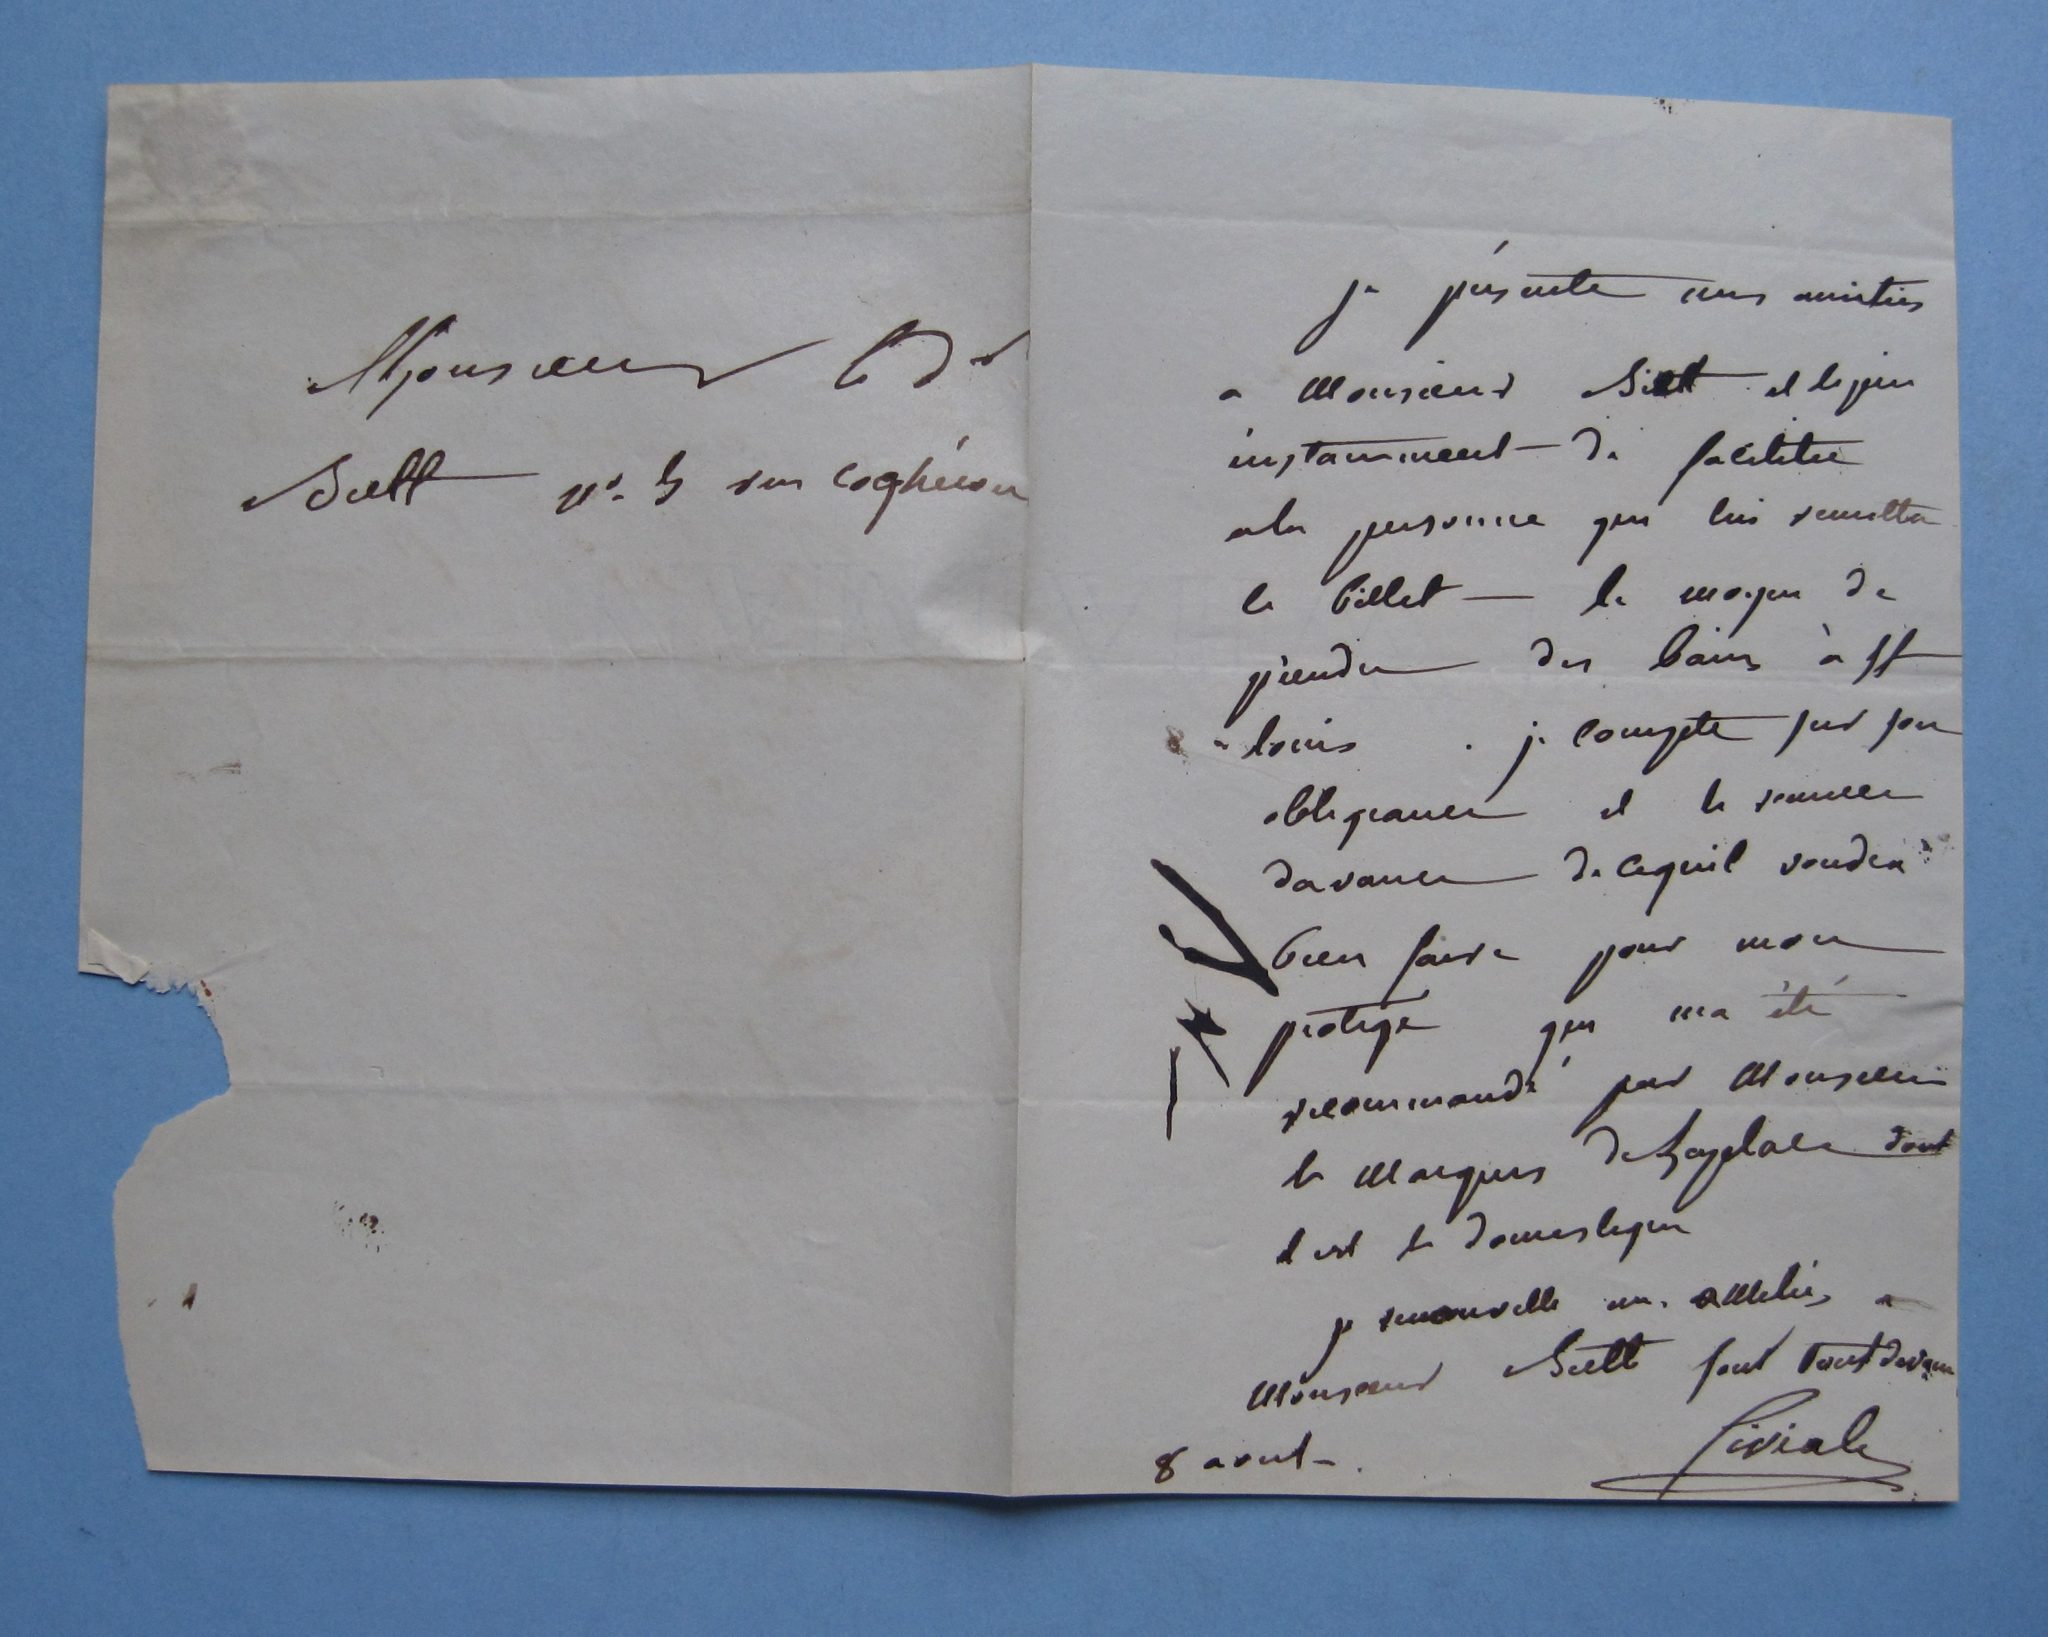 Monsieur le Dr
Biett no. 5 rue Coqhéron
je présente mes amitiés
a Monsieur Biett et le prie
instamment de faciliter
a la personne qui lui remettra
le billet le moyen de
prendre des bains à St
louis. je compte sur son
obligeance et le remercie
davance de cequil voudra
bien faire pour mon
protégé qui ma été
recommandé par Monsieur
le Marquis de dont
il est le domestique
je renouvelle mes amitiés a
Monsieur Biett
Civiale
8 aout